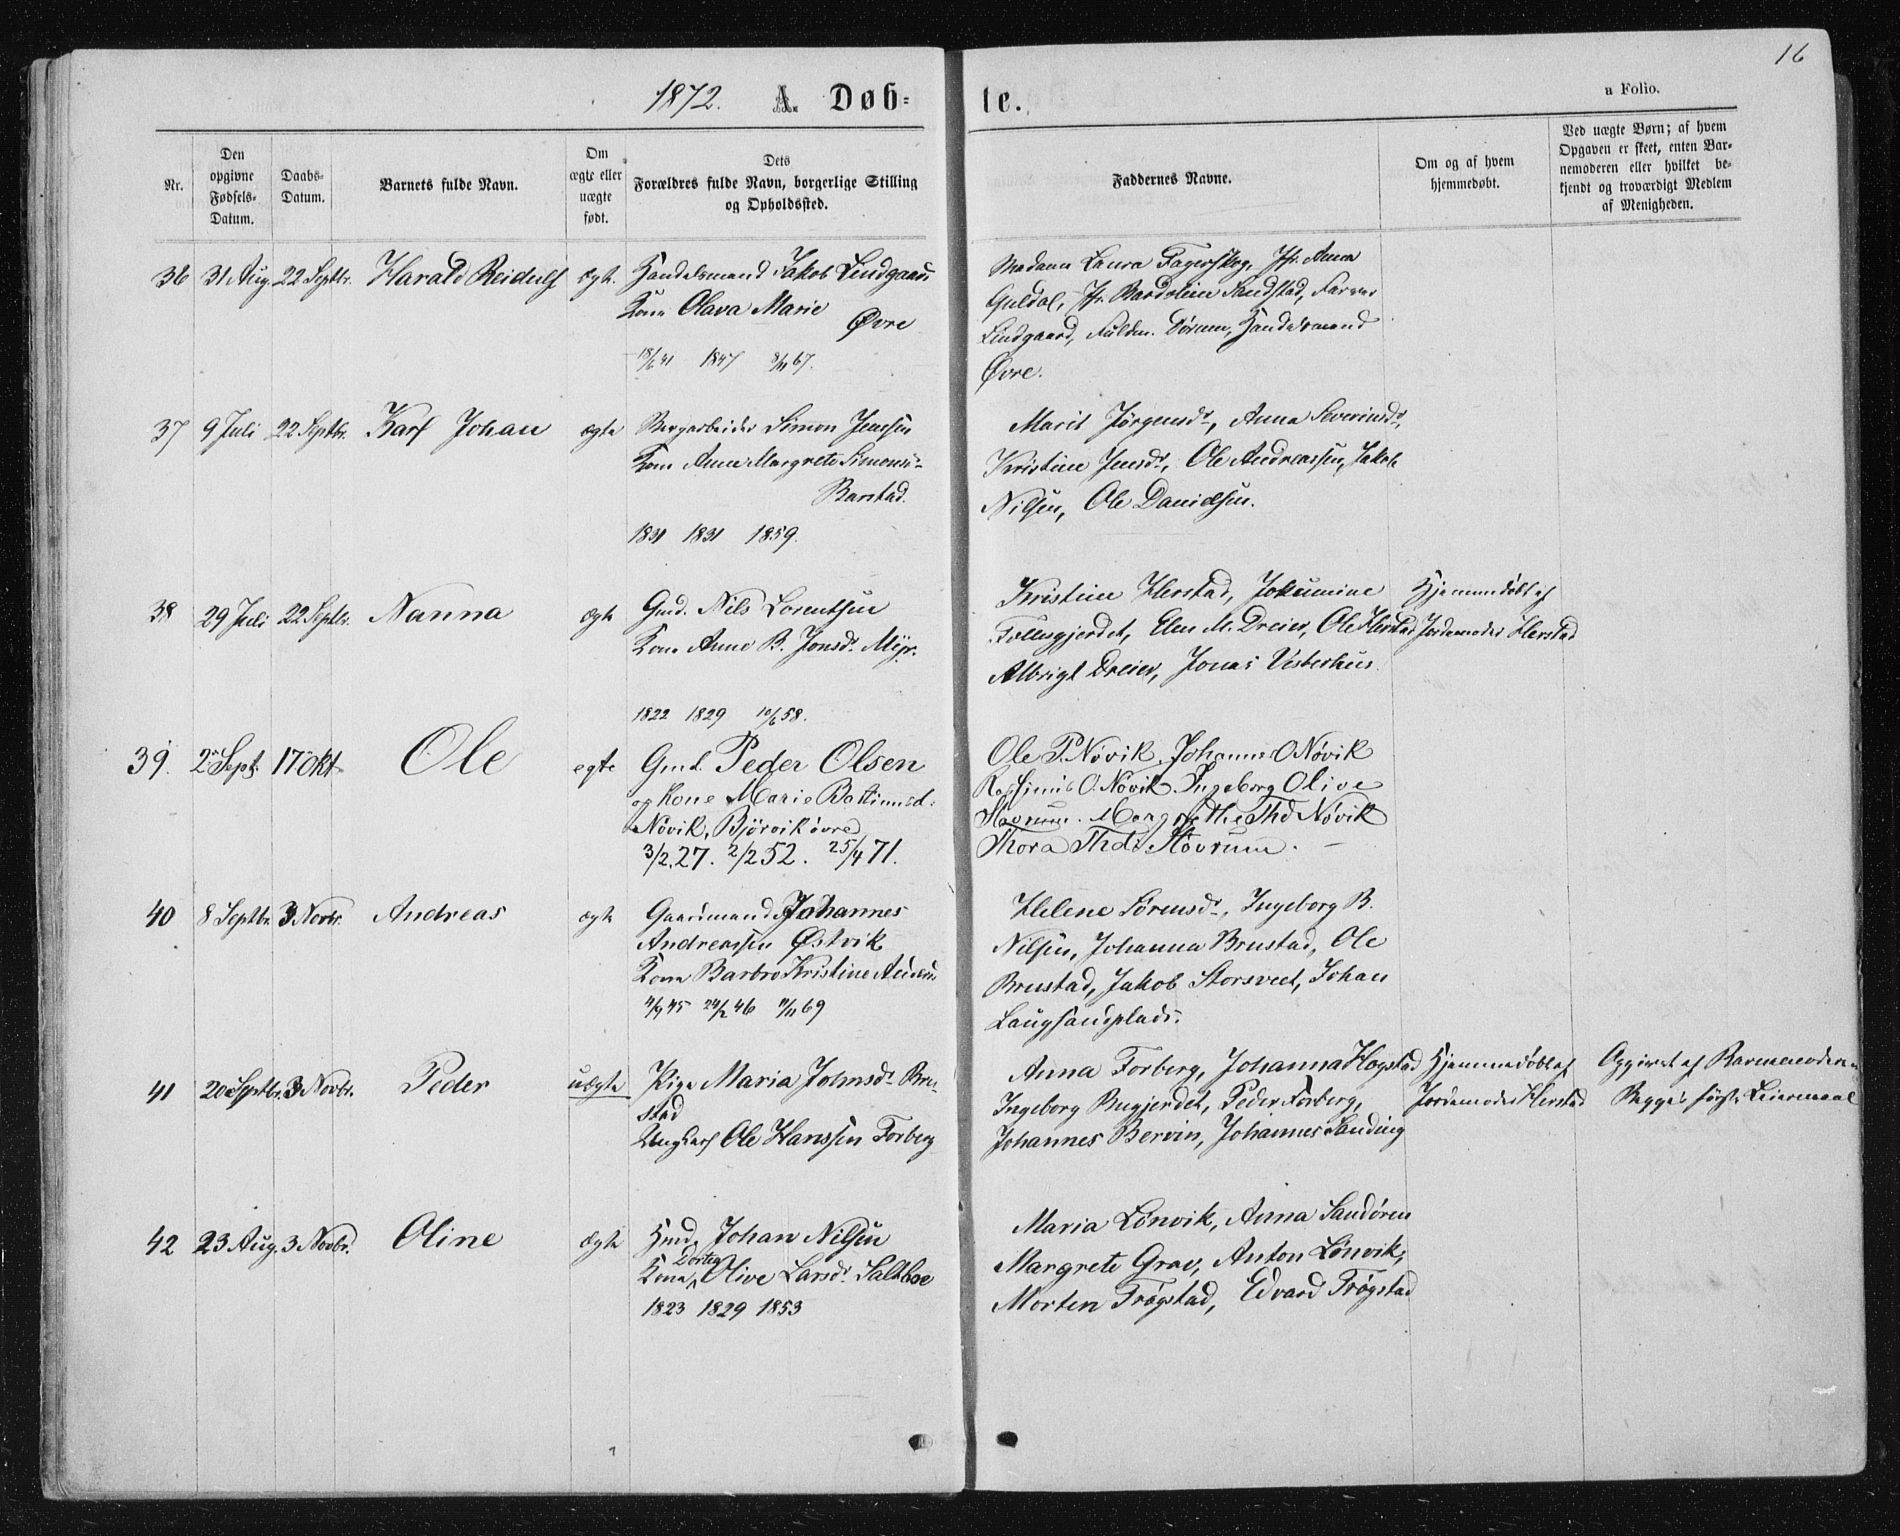 16
1872. A. Døb-te.
a Folio.
Nr.
Den opgivne Fødsels-Datum.
Daabs-Datum.
Barnets fulde Navn.
Om ægte eller uægte født.
Dets Forældres fulde Navn, borgerlige Stilling og Opholdssted.
Faddernes Navne.
Om og af hvem hjemmedøbt.
Ved uægte Børn; af hvem Opgaven er skeet, enten Barnemoderen eller hvilket bekjendt og troværdigt Medlem af Menigheden.
36 31 Aug. 22 Septbr. Harald Reidulf ægte
Handelsmand Jakob Lindgaard
Kone Olava Marie
Øvre
18/6 41 1847 8/11 67.
Madam Laura Fagerskog, Jfr. Anna
Guldal, Jfr. Sandstad, Farver
Lindgaard, Fuldm. Sørum, Handelsmand
Øvre.
37 9 Juli 22 Septbr. Karl Johan ægte
Bergarbeider Simon Jenssen
Kone Anne Margrete Simonsd.
Barstad.
1831 1831 1859.
Marit Jørgensdr, Anna Severinsdr,
Kristine Jensdr, Ole Andreassen, Jakob
Nilsen, Ole Danielsen.
38 29 Juli 22 Septbr. Nanna ægte
Gmd. Nils Lorentsen
Kone Anne B. Jonsdr. Myr.
1822 1829 10/6 58.
Kristine Herstad, Jokumine
Follesgjerdet, Elen M. Dreier, Ole Herstad
Albrigt Dreier, Jonas Vesterhus.
Hjemmedøbt af
Jordemoder Herstad
39. 2 Sept. 17 Okt. Ole egte
Gmd. Peder Olsen
og kone Marie Bastiansd.
Nøvik, Bjørvik øvre
3/2 27. 2/2 52. 25/4 71.
Ole P. Nøvik, Johannes O Nøvik
O. Nøvik. Ingeborg Olive
Støvrum. Margrethe Thd Nøvik
Thora Thdr Støvrum.
40 8 Septbr. 3 Novbr. Andreas ægte
Gaardmand Johannes
Andreassen Østvik
Kone Barbro Kristine
4/9 45 24/2 46 11/11 69
Helene Sørensdr, Ingeborg B.
Nilsen, Johanna Brustad, Ole
Brustad, Jakob Storsveet, Johan
Laugsandplads.
41 20 Septbr. 3 Novbr. Peder uægte
Pige Maria Johnsdr. Bru-
stad
Ungkarl Ole Hanssen Forberg
Anna Forberg, Johanna Hogstad
Ingeborg Bugjerdet, Peder Forberg,
Johannes Bervin, Johannes Sanding
Hjemmedøbt af
Jordemoder Herstad
Opgivet af Barnemoderen
Begges første Leiermaal
42 23 Aug. 3 Novbr. Oline ægte
Hmd. Johan Nilsen
Dortea
Kone Olive Larsdr. Saltboe
1823 1829 1853
Maria Lønvik, Anna Sandøren
Margrete Grav, Anton Lønvik,
Morten Frøgstad, Edvard Frøgstad